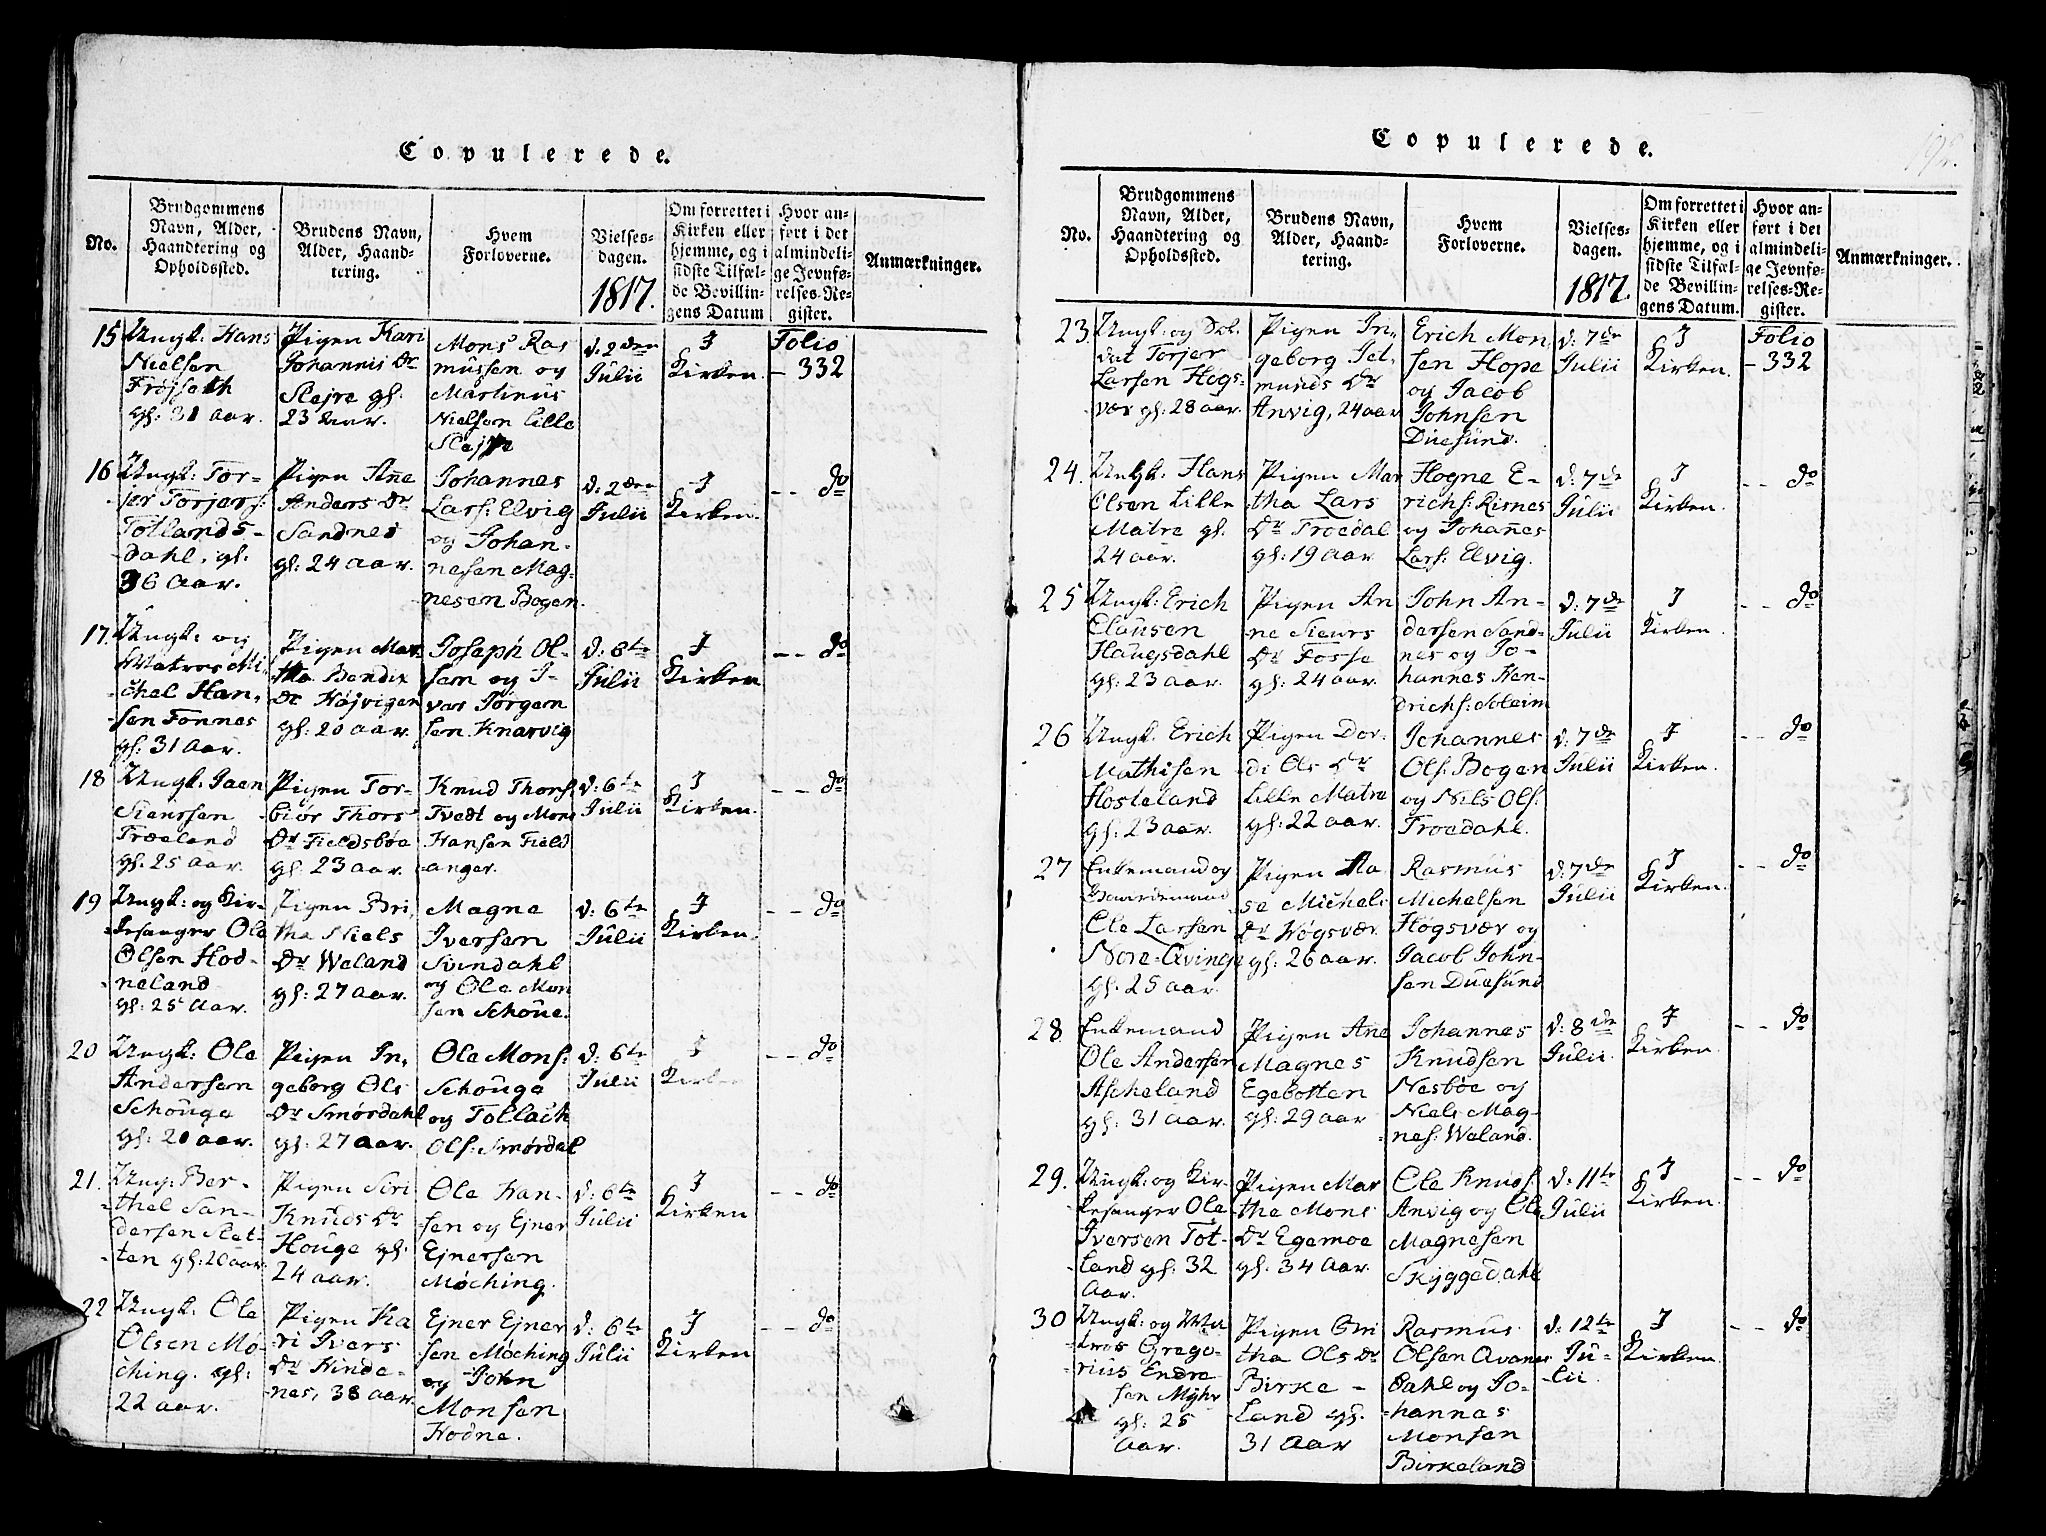 Copulerede.
No.
Brudgommens
Navn, Alder,
Haandtering og
Opholdssted.
Brudens Navn,
Alder, Haand-
tering.
Hvem
Forloverne.
Vielses-
dagen.
1817.
Om forrettet i
Kirken eller
hjemme, og i
sidste Tilfæl-
de Bevillin-
gens Datum
Hvor an-
ført i det
almindeli-
ge Jevnfø-
relses-Re-
gister.
Anmærkninger.
15
Ungk: Hans
Nielsen
Frøjseth
gl: 31 Aar.
Pigen Kari
Johannis Dr
Slejre gl.
23 Aar.
Mons Ras
mussen og
Martinus
Nielsen Lille
Slejre
d: 2den
Julii
I
Kirken.
Folio
- 332
16
Ungk: Tor-
jer Torjers:
Totlands-
dahl. gl:
36 Aar.
Pigen Ane
Anders Dr
Sandnes
gl: 24 Aar.
Johannes
Lars: Elvig
og Johan-
nesen Mag-
nesen Bogen.
d: 2den
Julii
I
Kirken.
-- do
17.
Ungk: og
Matros Mi
chel Han-
sen Fonnes
gl: 31 Aar.
Pigen Mar
tha Bendix
Dr Højvigen
gl: 20 Aar.
Joseph Ol-
sen og I-
var Jørgen
sen Knarvig
d: 6te
Julii
I
Kirken
-- do
18
Ungk: Jaen
Sieursen
Træeland
gl: 25 Aar.
Pigen Tor-
biør Thors
Dr Fieldsbøe
gl: 23 aar.
Knud Thors:
Tvedt og Mons
Hansen Field
anger.
d: 6te
Julii
I
Kirken.
-- do
19
Ungk: og Kir-
kesanger Ole
Olsen Hod-
neland
gl: 25 Aar.
Pigen Bri,
tha Niels
Dr Weland
gl: 27 Aar.
Magne
Iversen
Svindahl
og Ole Mon
sen Schoue.
d: 6te
Julii
I
Kirken.
-- do
20
Ungk: Ole
Andersen
Schouge
gl: 20 aar.
Pigen In,
geborg Ols
Dr Smørdahl
gl: 27 aar.
Ole Mons:
Schouge
og Tollach
Ols: Smørdal
d: 6te
Julii
I
Kirken
-- do
21.
Ung: Ber-
thel San-
dersen Slet-
ten gl: 20 aar
Pigen Siri
Knuds Dr
Houge gl:
24 aar.
Ole Han-
sen og Ejner
Ejnersen
Møching.
d: 6te
Julii
I
Kirken
-- do
22
Ungk: Ole
Olsen Mø-
ching. gl:
22 aar.
Pigen Ka
ri Ivers
Dr Hinde-
nes, 38 aar
Ejner Ejner
sen Møching
og John
Monsen
Hodne.
d: 6te
Julii
I
Kirken
-- do
Copulerede.
No.
Brudgommens
Navn, Alder,
Haandtering og
Opholdssted.
Brudens Navn,
Alder, Haand-
tering.
Hvem
Forloverne.
Vielses-
dagen.
1817.
Om forrettet i
Kirken eller
hjemme, og i
sidste Tilfæl-
de Bevillin-
gens Datum.
Hvor an-
ført i det
almindeli-
ge Jevnfø-
relses-Re-
gister.
Anmærkninger.
23
Ungk: og Sol.
dat Torjer
Larsen Høgs-
vær gl: 28 aar.
Pigen In,
geborg Jet-
munds Dr
Anvig, 24 aar
Erich Mon
sen Hope
og Jacob
Johnsen
Duesund.
d: 7de
Julii
I
Kirken.
Folio
- 332
24.
Ungk: Hans
Olsen Lille
Matre gl.
24 aar.
Pigen Mar
tha Lars
Dr Troedal
gl: 19 Aar
Hogne E-
richs: Risnes
og Johanes
Lars: Elvig.
d: 7de
Julii
I
Kirken.
-- do
25
Ungk: Erich
Clausen
Haugsdahl
gl: 23 aar.
Pigen An
ne Sieurs
Dr Fosse
gl: 24 aar.
John An-
dersen Sand-
nes og Jo-
hannes Hen-
drichs: Soleim
d: 7de
Julii
I
Kirken.
-- do
26
Ungk. Erich
Mathisen
Hosteland
gl: 23 aar.
Pigen Dor-
di Ols Dr
Lille Matre
gl: 22 aar.
Johannes
Ols: Bogen
og Nils Ols:
Troedahl.
d: 7de
Julii
I
Kirken.
-- do
27
Enkemand og
Gaardemand
Ole Larsen
Nore-Qvinge
gl: 25 aar.
Pigen Aa
se Michels
Dr Høgsvær
gl: 26 aar.
Rasmus
Michelsen
Høgsvær og
Jacob John-
sen Duesund
d: 7de
Julii
I
Kirken.
-- do
28
Enkemand
Ole Andersen
Ascheland
gl: 31 aar.
Pigen Ane
Magnes
Egebotten
gl: 29 aar
Johannes
Knudsen
Nesbøe og
Niels Mag-
nes: Weland.
d: 8de
Julii.
I
Kirken.
-- do
29.
Ungk: og Kir-
kesanger Ole
Iversen Tot-
land gl: 32
Aar.
Pigen Mar
tha Mons
Dr Egemoe
gl: 34 Aar.
Ole Knuds:
Anvig og Ole
Magnesen
Skyggedahl
d: 11te
Julii
I
Kirken.
-- do
30
Ungk: og Ma
tros Grego-
rius Endre
sen Myhr
gl: 25
Aar.
Pigen Bri
tha Ols Dr
Birke-
land gl.
31 Aar
Rasmus
Olsen Qvame
Dahl og Jo-
hannes
Monsen
Birkeland
d: 12te
Ju-
lii.
I
Kirken.
-- do